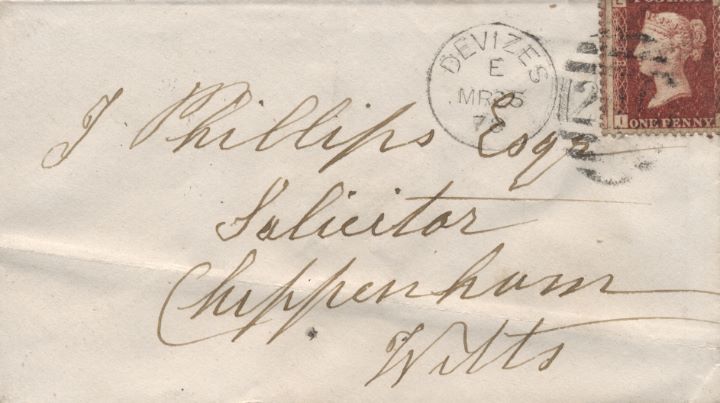 DEVIZES
E
MR 25
J Phillips Esqr
Solicitor
Chippenham
Wilts
POSTAGE
ONE PENNY
I